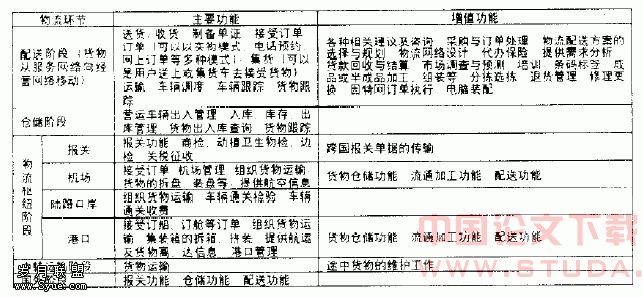 物流环节 主要功能 增值功能
配送阶段（货物从服务网络向经营网络移动）
送货、收货 制备单证 接受订单
订单（可以以实物模式 电话预约
网上订单等多种模式） 集货（可以
是用户送上或集货车去接受货物）
运输 车辆调度 车辆跟踪 货物跟踪
各种相关建议及咨询 采购与订单处理 物流配送方案的
选择与规划 物流网络设计 代办保险 提供需求分析
货款回收与结算 市场调查与预测 培训 条码标签 成
品或半成品加工、组装等 分拣选拣 退货管理 修理更
换 因特网订单执行 电脑装配
仓储阶段
营运车辆出入管理 入库 库存 出
库管理 货物出入库查询 货物跟踪
物流枢纽阶段
报关
报关功能 商检、动植卫生物检、边
检 关税征收
跨国报关单据的传输
机场
接受订单 机场管理 组织货物运输
货物的拆盘 装盘等，提供航空信息
货物仓储功能 流通加工功能 配送功能
陆路口岸
组织货物运输 车辆通关检验 车辆
通关收费
港口
接受订船、订舱等订单 组织货物运
输 集装箱的拆箱、拼装 提供航
及货物 达信息 港口管理
货物仓储功能 流通加工功能 配送功能
阶段 货物运输 途中货物的维护工作
报关功能 仓储功能 配送功能
中国论文下载
WWW.STUDA.